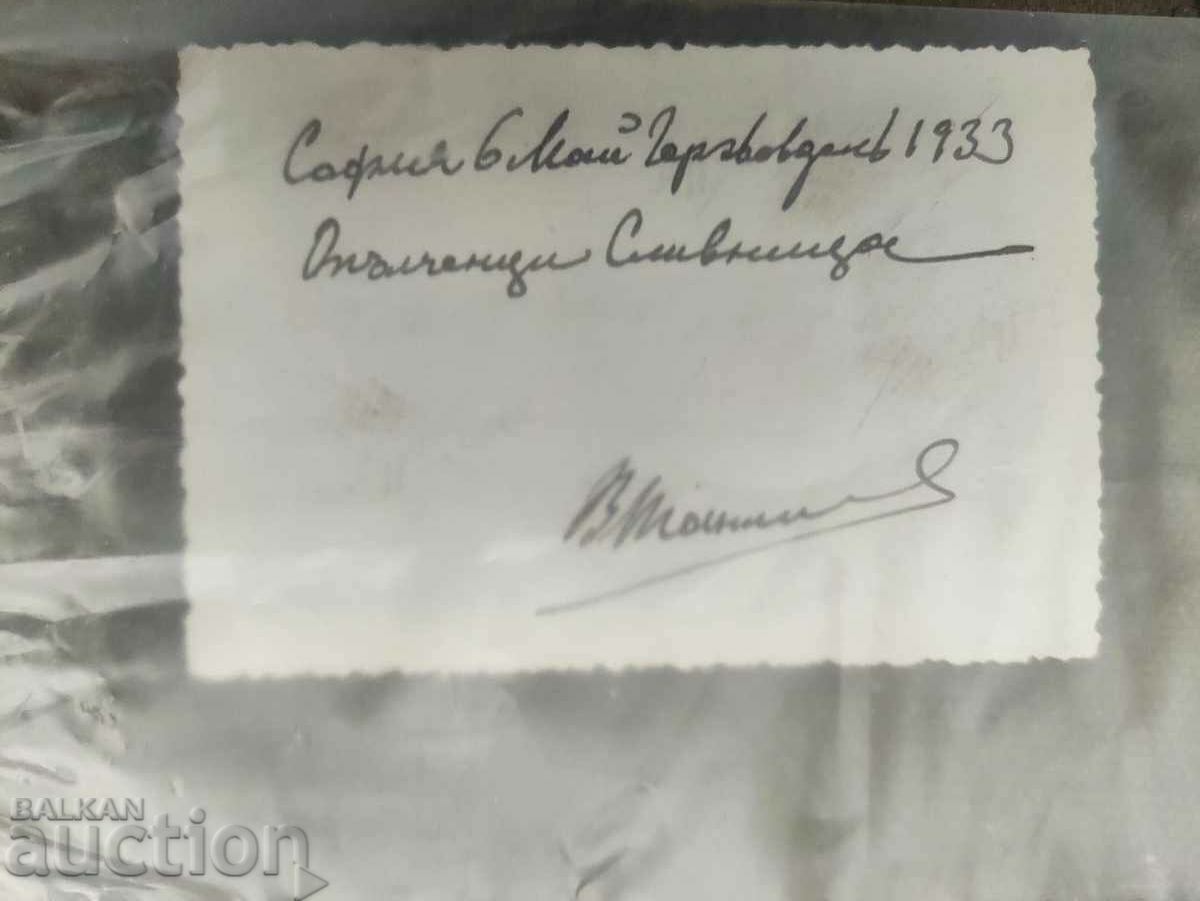 София 6 Май Гергьовденъ 1933
Опълченци Сливница
BALKAN
auction